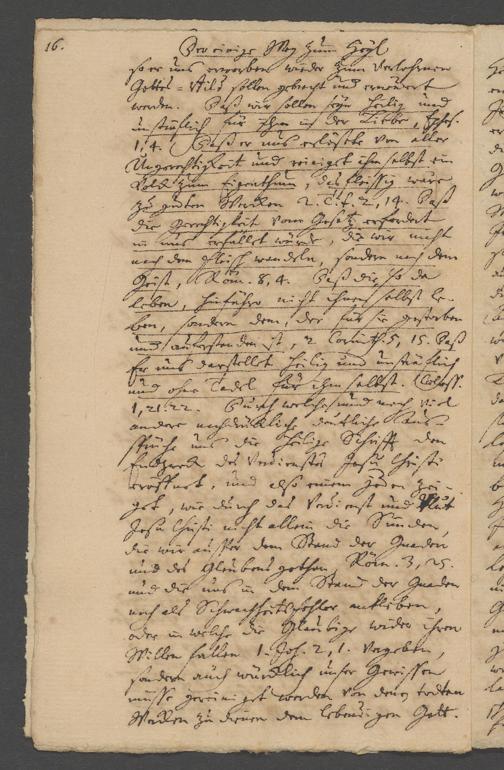 16.
Der einige Weg zum Heyl
so er uns erworben wieder zum verlohrnen
Gottes-Bild sollen gebracht und erneuert
werden. Daß wir sollen seyn heilig und
unsträflich für Ihm in der Liebe, Ephes.
1, 4. Daß er uns erlösete von aller
Ungerechtigkeit und reinigte ihm selbst ein
Volk zum Eigenthum, das fleissig wäre
zu guten Wercken 2, 14. Daß
die Gerechtigkeit vom Gesetz erfordert
in uns erfüllet würde, die wir nicht
nach dem Fleisch wandeln, sondern nach dem
Geist, Röm. 8, 4. Daß die, so da
leben, hinführo nicht ihnen selbst le-
ben, sondern dem, der für sie gestorben
und auferstanden ist, 2 Corinth. 5, 15. Daß
Er uns darstellet heilig und unsträflich
und ohne Tadel für ihm selbst. Coloss.
1, 21. 22. Durch welches und noch viel
andere nachdrückliche deutliche Aus-
sprüche uns die Heilige Schrifft den
Endzweck des Verdienstes Jesu Christi
eröffnet, und also einem jeden zei-
get, wie durch das Verdienst und Blut
Jesu Christi nicht allein die Sünden,
die wir ausser dem Stand der Gnaden
und des Glaubens gethan, Röm. 3, 25.
und die uns in dem Stand der Gnaden
noch als Schwachheitsfehler ankleben,
oder in welche die Gläubige wider ihren
Willen fallen 1. Joh. 2, 1. vergeben,
sondern auch würcklich unser Gewissen
müsse gereiniget werden von denen todten
Wercken zu dienen dem lebendigen Gott.